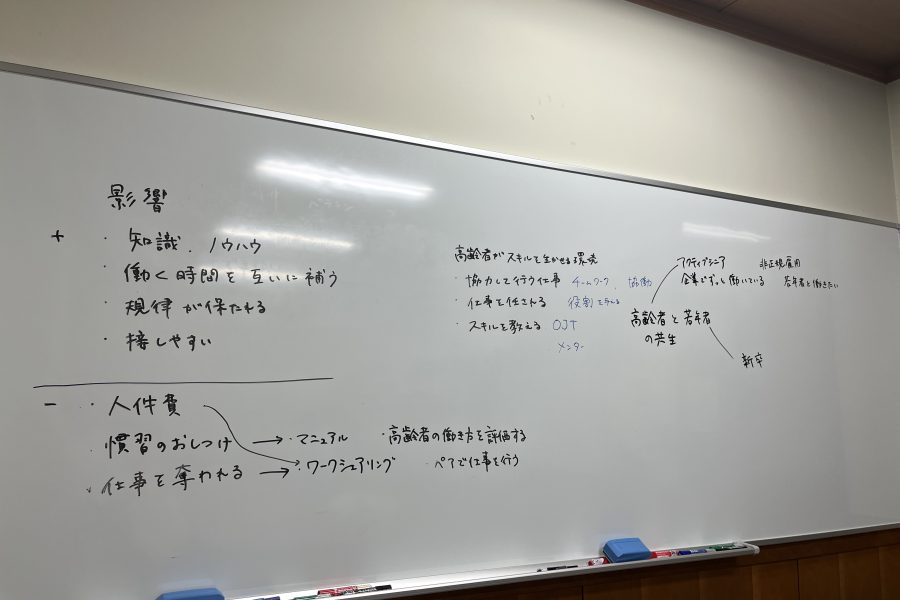 影響
+ ・知識、ノウハウ
・働く時間を互いに補う
・規律が保たれる
・接しやすい
- ・人件費
慣習のおしつけ → ・マニュアル ・高齢者の働き方を評価する
・仕事を奪われる → ・ワークシェアリング ・ペアで仕事を行う
高齢者がスキルを生かせる環境
・協力して行う仕事 チームワーク、協働
・仕事を任される 役割を与える
・スキルを教える OJT
・メンター
アクティブシニア 非正規雇用
企業でずっと働いている 若年者と働きたい
高齢者と若年者
の共生
新卒